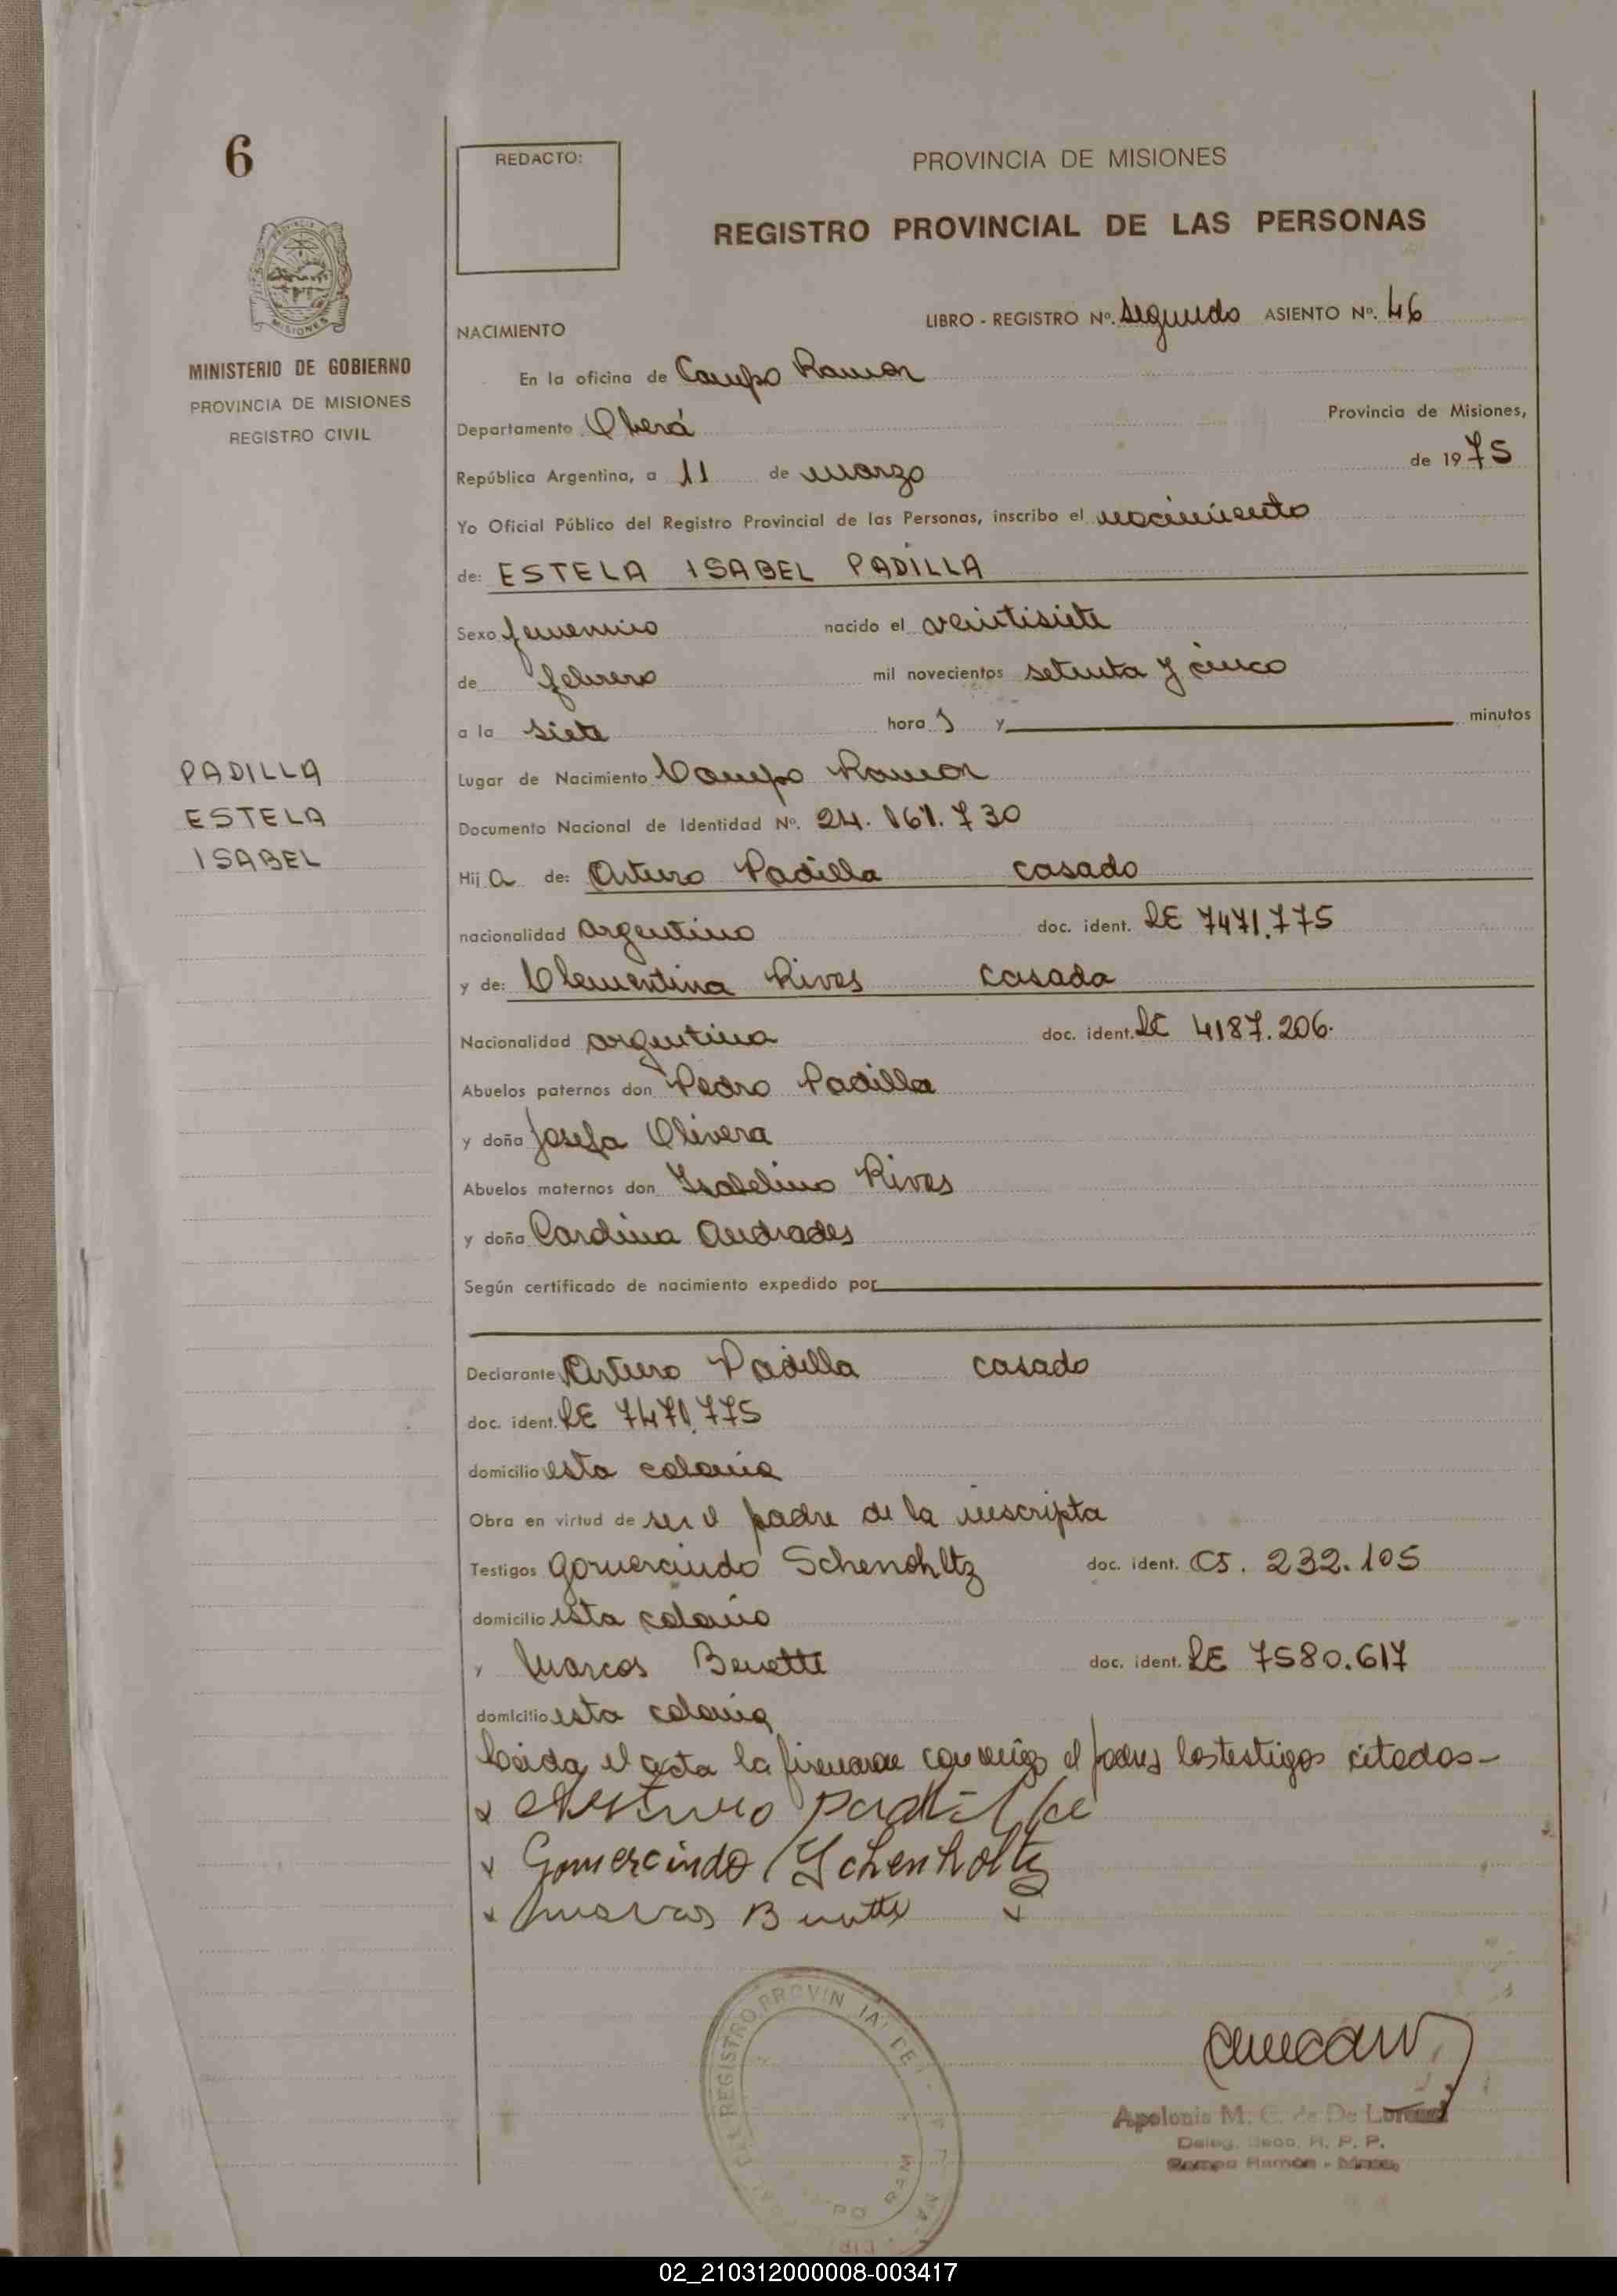 6
REDACTO:
PROVINCIA DE MISIONES
REGISTRO PROVINCIAL DE LAS PERSONAS
MISIONES
MINISTERIO DE GOBIERNO
PROVINCIA DE MISIONES
REGISTRO CIVIL
NACIMIENTO
LIBRO - REGISTRO Nº. Segundo ASIENTO Nº. 46
En la oficina de Campo Ramon
Departamento Oberá Provincia de Misiones,
República Argentina, a 11 de marzo de 1975
Yo Oficial Público del Registro Provincial de las Personas, inscribo el nacimiento
de: ESTELA ISABEL PADILLA
Sexo femenino nacido el veintisiete
de febrero mil novecientos setenta y cinco
a la siete hora s y minutos
PADILLA
ESTELA
ISABEL
Lugar de Nacimiento Campo Ramon
Documento Nacional de Identidad Nº. 24.161.730
Hij a de: Arturo Padilla casado
nacionalidad argentino doc. ident. LE 7471.775
y de: Clementina Rivas casada
Nacionalidad argentina doc. ident. LC 4187.206.
Abuelos paternos don Pedro Padilla
y doña Josefa Olivera
Abuelos maternos don Ysabelino Rivas
y doña Cardina Andrades
Según certificado de nacimiento expedido por
Declarante Arturo Padilla casado
doc. ident. LE 7471.775
domicilio esta colonia
Obra en virtud de ser el padre de la inscripta
Testigos Gomercindo Schenohltz doc. ident. CI. 232.105
domicilio esta colonia
y Marcos Benette doc. ident. LE 7580.617
domicilio esta colonia
Leida el acta la firmaran conmigo el padre y los testigos citados-
x Arturo padilla
x Gomercindo Schenholtz
x Marcos Benette x
REGISTRO PROVIN IAL DE
PO RAM
Apolonia M. C. de De Lorenzi
Deleg. Secc. R. P. P.
Campo Ramón - Mnes.
02_210312000008-003417